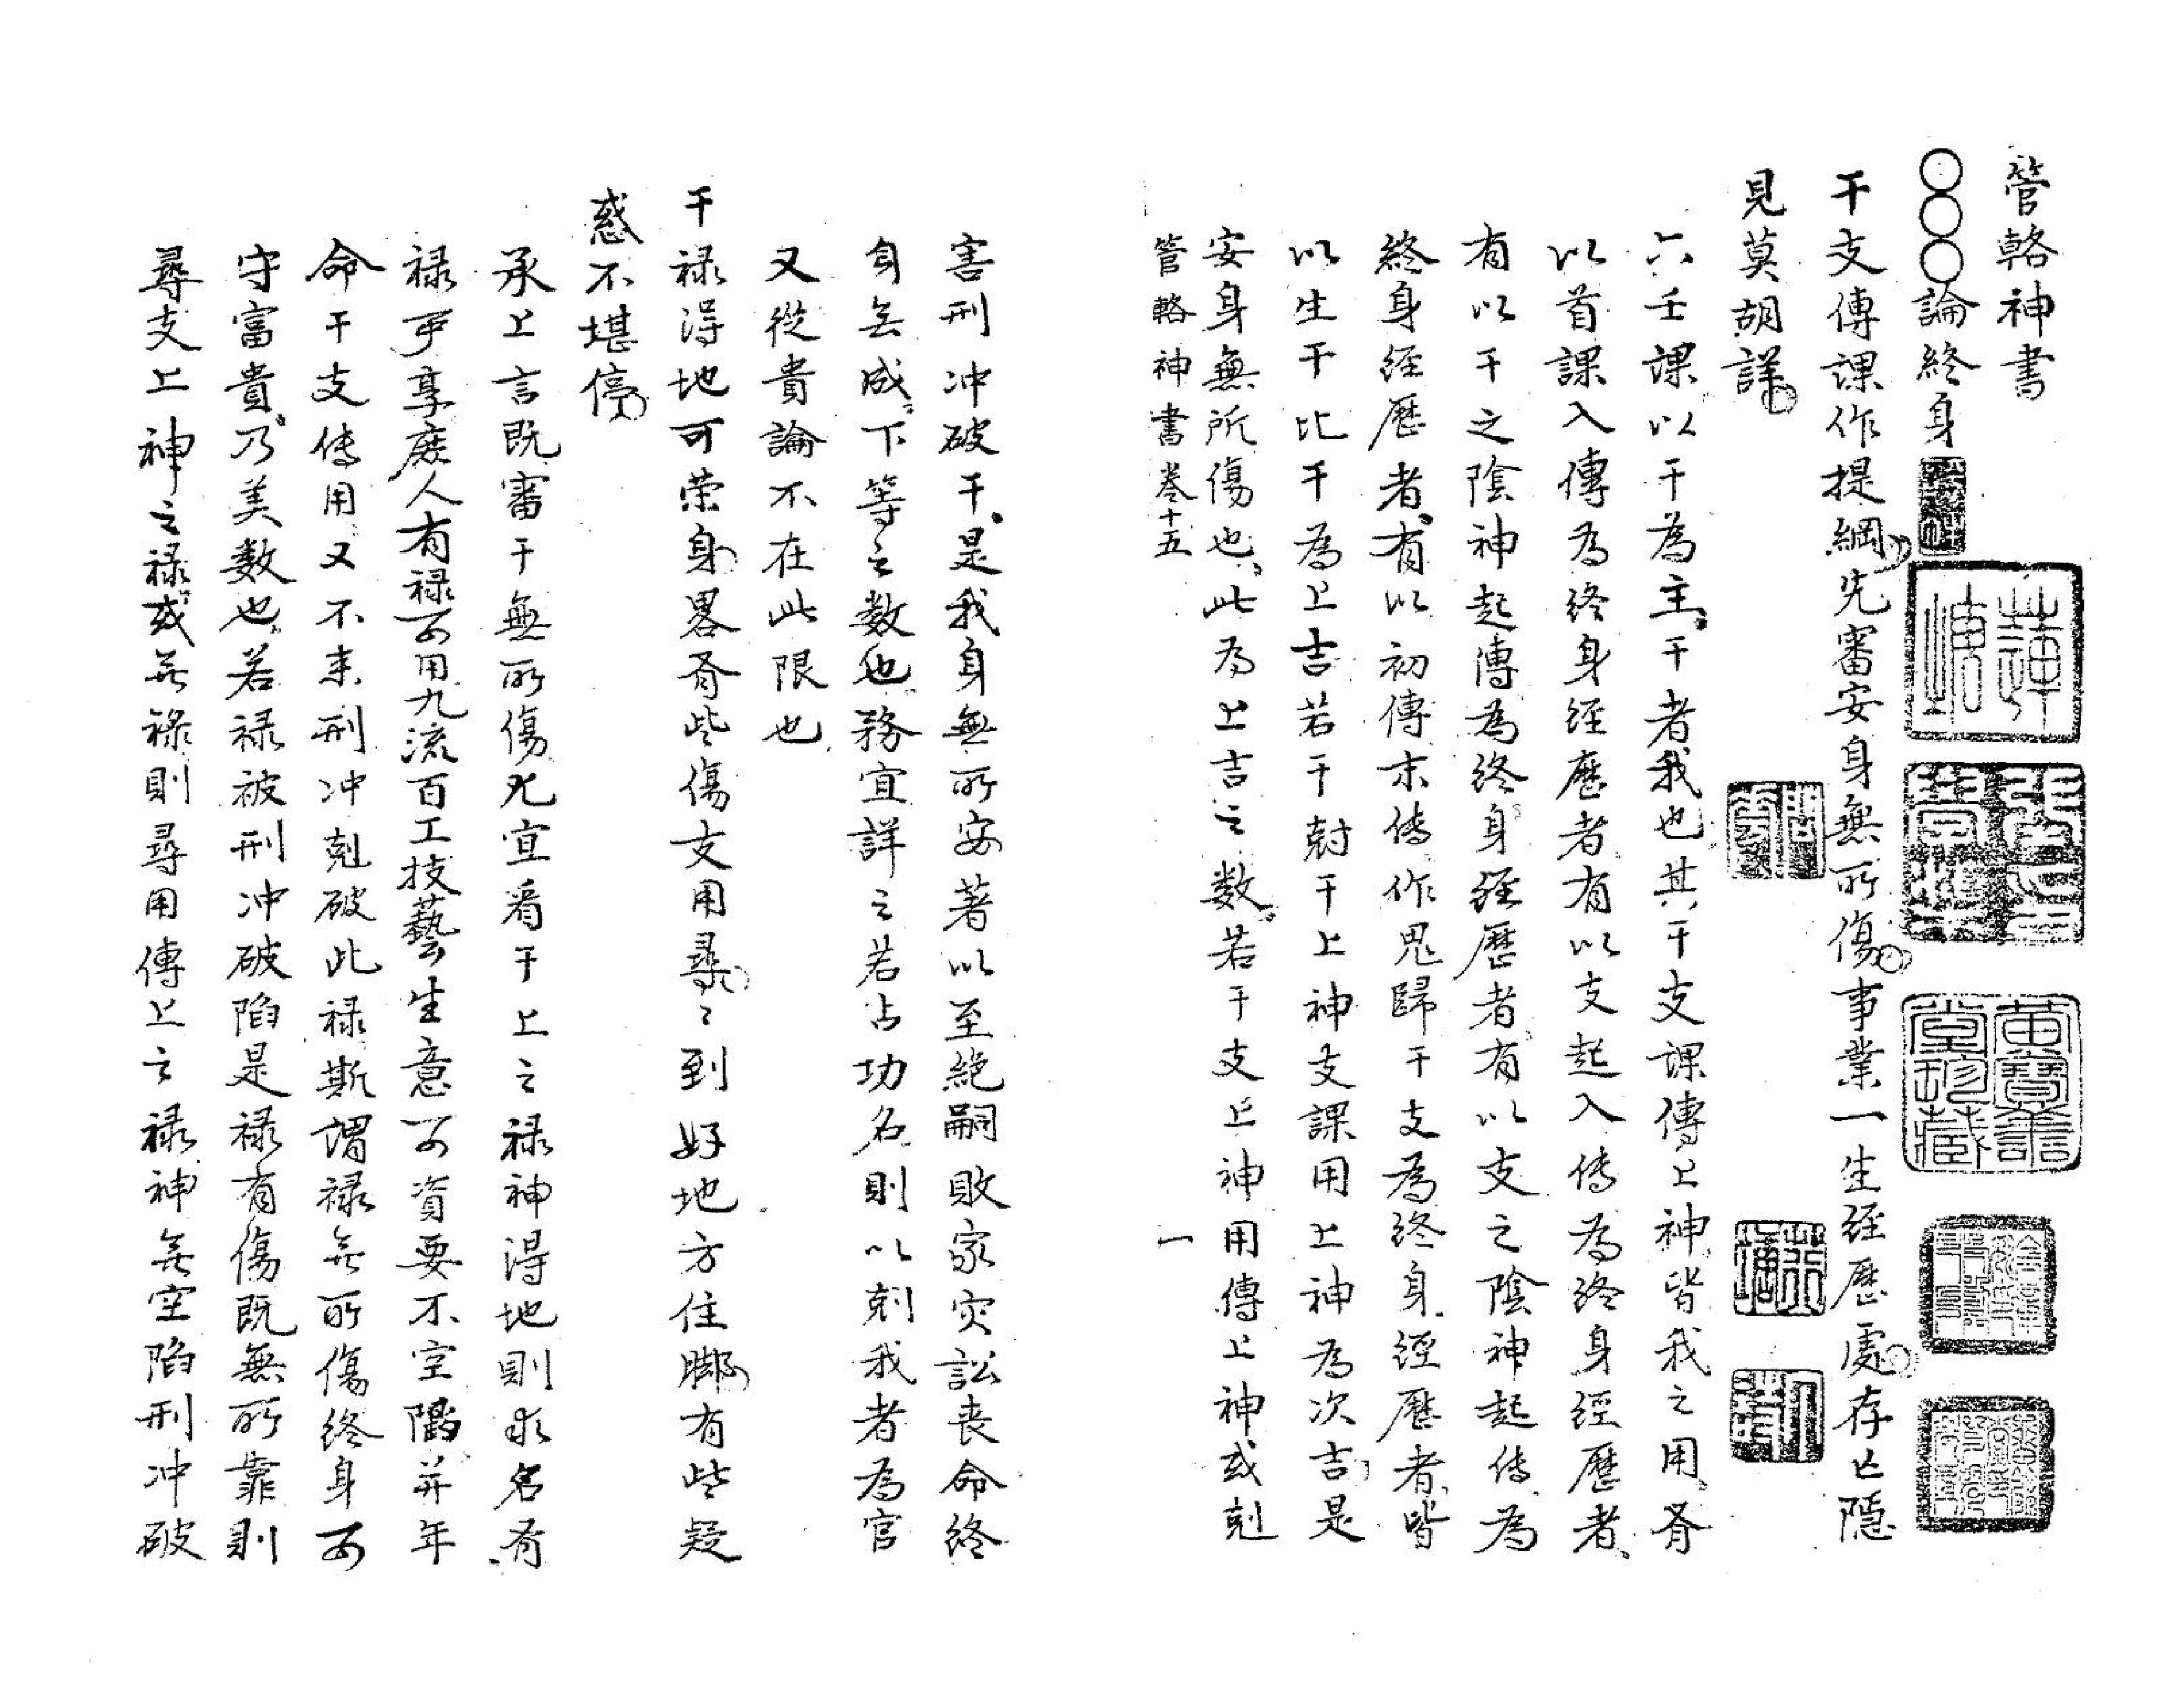 管輅神書
〇〇〇論終身
干支傳課作提綱先審安身無所傷事業一生經歷處存亡隱
見莫胡詳
六壬課以干為主干者我也其干支課傳上神皆我之用有
以首課入傳為終身經歷者有以支起入传為終身經歷者
有以干之陰神起傳為終身經歷者有以支之陰神起传為
終身經歷者有以初傳末传作鬼歸干支為終身經歷者皆
以生干比干為上吉若干尅干上神支課用上神為次吉是
安身無所傷也此為上吉之数若干支上神用傳上神或剋
管輅神書卷十五 一
害刑冲破干是我身無所安著以至絶嗣敗家灾訟丧命終
身无成下等之数也務宜詳之若占功名則以剋我者為官
又從貴論不在此限也
干禄得地可荣身畧有些傷支用尋々到好地方住腳有些疑
惑不堪停
承上言既審干無所傷尤宜看干上之禄神得地則求名有
禄可享庶人有禄可用九流百工技藝生意可資要不空陷并年
命干支传用又不来刑冲剋破此禄斯謂禄无所傷終身可
守富貴乃美数也若禄被刑冲破陷是禄有傷既無所靠則
尋支上神之禄或无禄則尋用傳上之禄神无空陷刑冲破